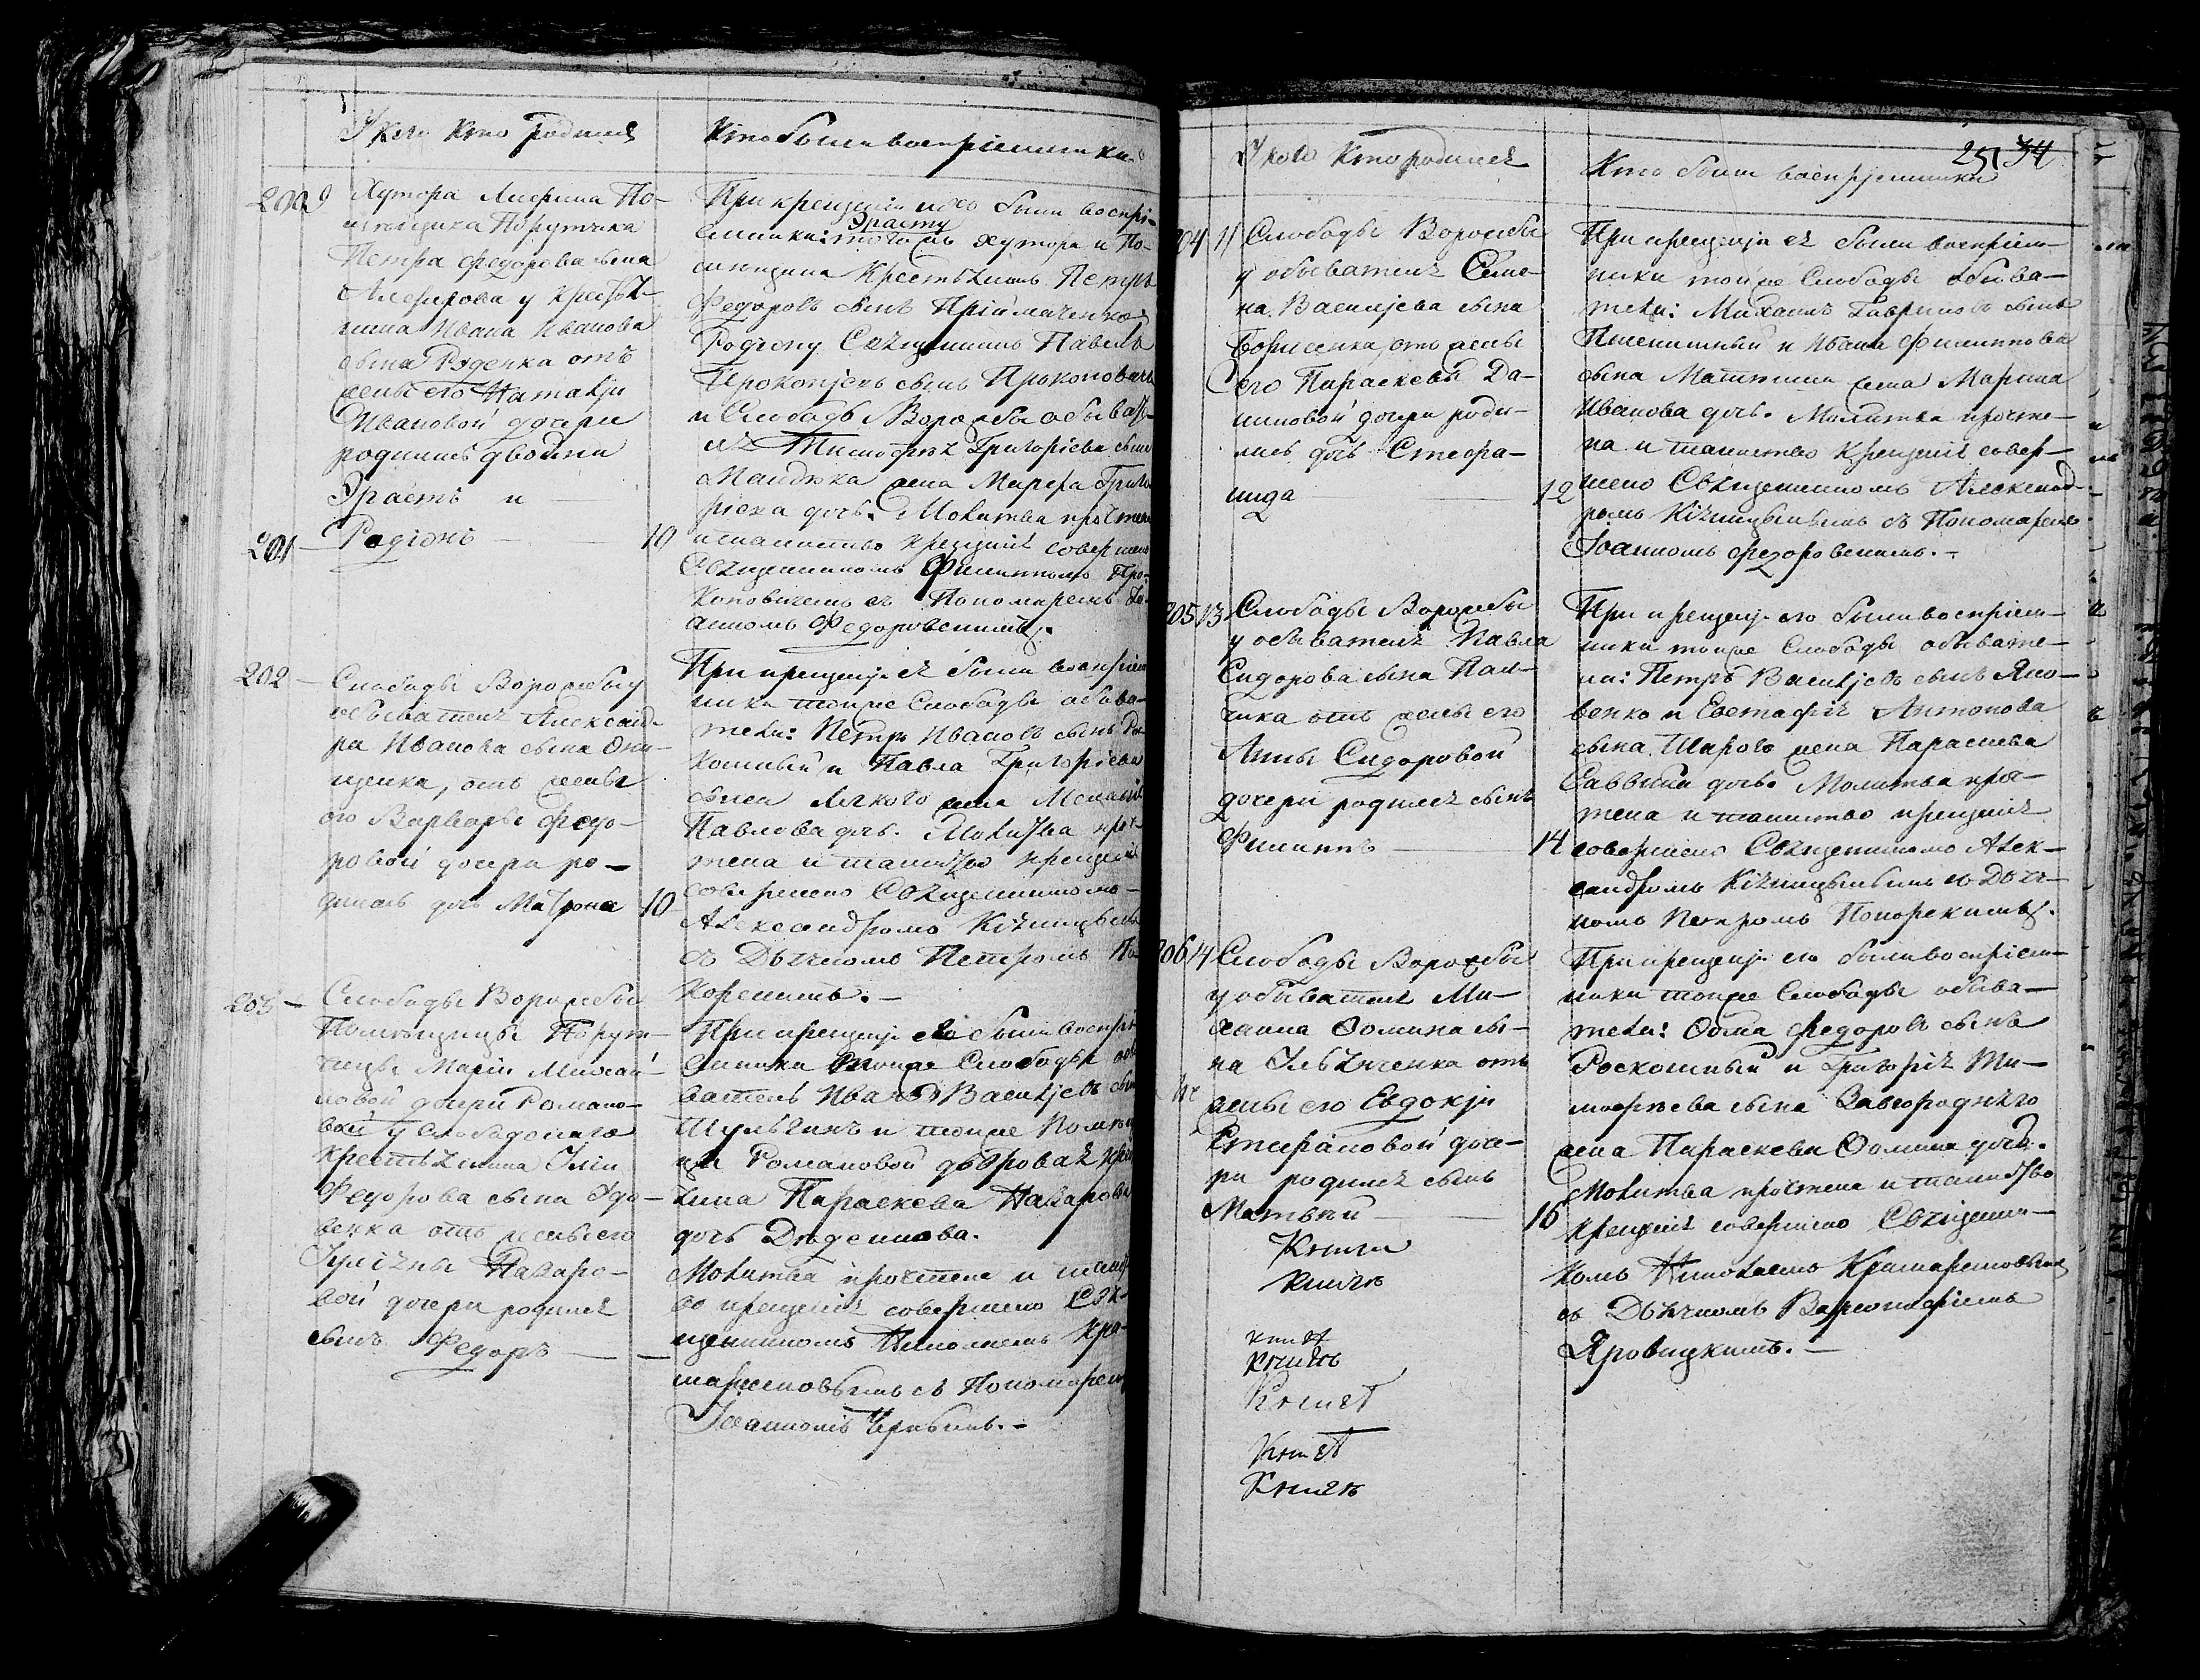 У кого кто родился
Кто были восприемники
200 9 Хутора По-
мещика Порутчика
Петра Федорова сына
Алферова у крестья-
нина Ивана Иванова
сына Руденка отъ
жены его Наталіи
Ивановой дочери
родились двойни
Эрастъ и
201 Родіонъ 10
При крещеніи ихъ были воспрі-
емники: Эрасту того жъ хутора и По-
мещика Крестьянинъ Петръ
Федоровъ сынъ Прійманенко
Родіону Священникъ Павелъ
Прокопіевъ сынъ Прокоповичь
и Слободы Ворожбы обыват-
ля Тимофея Григоріева сына
жена Марфа Григо-
ріева дочь. Молитва прочтена
и таинство крещенія совершено
Священникомъ Филиппомъ Про-
коповичемъ съ Пономаремъ Іо-
анномъ Федоровскимъ.
202 Слободы Ворожбы у
обывателя Александ-
ра Иванова сына Они-
щенка, отъ жены
его Варвары Федо-
ровой дочери ро-
дилась дочь Матрона 10
При крещеніи ея были воспріем-
ники тойже Слободы обыва-
тели: Петръ Ивановъ сынъ Рос-
кошный и Павла Григоріева
сына Лягкого жена Меланія
Павлова дочь. Молитва проч-
тена и таинство крещенія
совершено Священникомъ
Александромъ Кіяницынымъ
съ Дьячкомъ Петромъ По-
корскимъ.
203 Слободы Ворожбы
Помещицы Порут-
чицы Маріи Михай-
ловой дочери Романо-
вой у слободского
крестьянина Иліи
Федорова сына Удо-
венка отъ жены его
Иріины Назаро-
вой дочери родился
сынъ Федоръ
При крещеніи его были воспрі-
емники тойже Слободы обы-
ватель Иванъ Васильевъ сынъ
Шульгинъ и тойже Помещи-
цы Романовой дворовая
Параскева Назарова
дочь
Молитва прочтена и таинст-
во крещенія совершено Свя-
щенникомъ Николаемъ Кра-
маренковымъ съ Пономаремъ
Іоанномъ
251 34
У кого кто родился
Кто были воспріемники
204 11 Слободы Ворожбы
у обывателя Семе-
на Василіева сына
Борисенка, отъ жены
его Параскевы Да-
ниловой дочери роди-
лась дочь Стефа-
нида 12
При крещеніи ея были воспріем-
ники тойже Слободы обыва-
тели: Михаилъ Гавриловъ сынъ
Пшеничный и Ивана Филиппова
сына жена Марина
Иванова дочь. Молитва прочте-
на и таинство крещенія совер-
шено Священникомъ Александ-
ромъ Кіяницынымъ съ Пономаремъ
Іоанномъ Федоровскимъ.
205 13 Слободы Ворожбы
у обывателя Павла
Сидорова сына Пал-
чика отъ жены его
Анны Сидоровой
дочери родился сынъ
Филиппъ 14
При крещеніи его были воспріем-
ники тойже Слободы обывате-
ли: Петръ Васильевъ сынъ Яко-
венко и Евстафія Антонова
сына Шарого жена Параскева
Саввина дочь. Молитва проч-
тена и таинство крещенія
совершено Священникомъ Алек-
сандромъ Кіяницынымъ съ Дьяч-
комъ Петромъ Покорскимъ.
206 14 Слободы Ворожбы
у обывателя Ми-
хаила Фомина сы-
на Ильяченка отъ
жены его Евдокіи
Стефановой доче-
ри родился сынъ
Матвей 16
При крещеніи его были воспріем-
ники тойже Слободы обыва-
тели: Фома Федоровъ сынъ
Роскошный и Григорія Ти-
мофеева сына Завгородняго
жена Параскева Фомина дочь.
Молитва прочтена и таинство
крещенія совершено Священни-
комъ Николаемъ Крамаренковымъ
съ Дьячкомъ
Яровицкимъ.